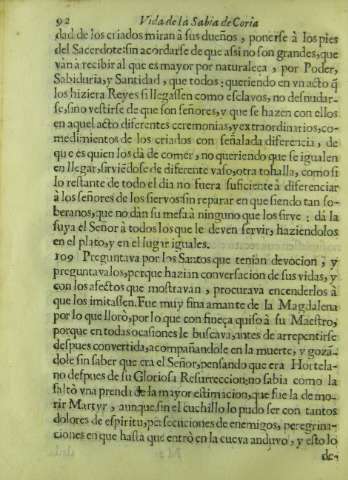 92 Vida de la Sabia de Coria
dad de los criados miran à sus dueños, ponerse à los pies
del Sacerdote: sin acordarse de que assi no son grandes, que
vàn à recibir al que es mayor por naturaleça, por Poder,
Sabiduria, y Santidad, que todos: queriendo en vn acto q̃
los hiziera Reyes si llegassen como esclavos, no desnudar-
se, sino vestirse de que son señores, y que se hazen con ellos
en aquel acto diferentes ceremonias, y extraordinarios, co-
medimientos de los criados con señalada diferencia, de
que es quien los dà de comer, no queriendo que se igualen
en llegar, sirviendose de diferente vaso, otra tohalla, como si
lo restante de todo el dia no fuera suficiente à diferenciar
à los señores de los siervos: sin reparar en que siendo tan so-
beranos, que no dàn su mesa à ninguno que los sirve: dà la
suya el Señor à todos los que le deven servir, haziendolos
en el plato, y en el lugar iguales.
109 Preguntava por los Santos que tenian devocion, y
preguntavalos, porque hazian conversacion de sus vidas, y
con los afectos que mostravan, procurava encenderlos à
que los imitassen. Fue muy fina amante de la Magdalena
por lo que llorò, por lo que con fineça quiso à su Maestro,
porque en todas ocasiones le buscava, antes de arrepentirse
despues convertida, acompañandole en la muerte, y gozã-
dole sin saber que era el Señor, pensando que era Hortela-
no despues de su Gloriosa Resurreccion: no sabia como la
faltò vna prenda de la mayor estimacion, que fue la de mo-
rir Martyr, aunque sin el cuchillo lo pudo ser con tantos
dolores de espiritu, persecuciones de enemigos, peregrina-
ciones en que hasta que entrò en la cueva anduvo, y esto lo